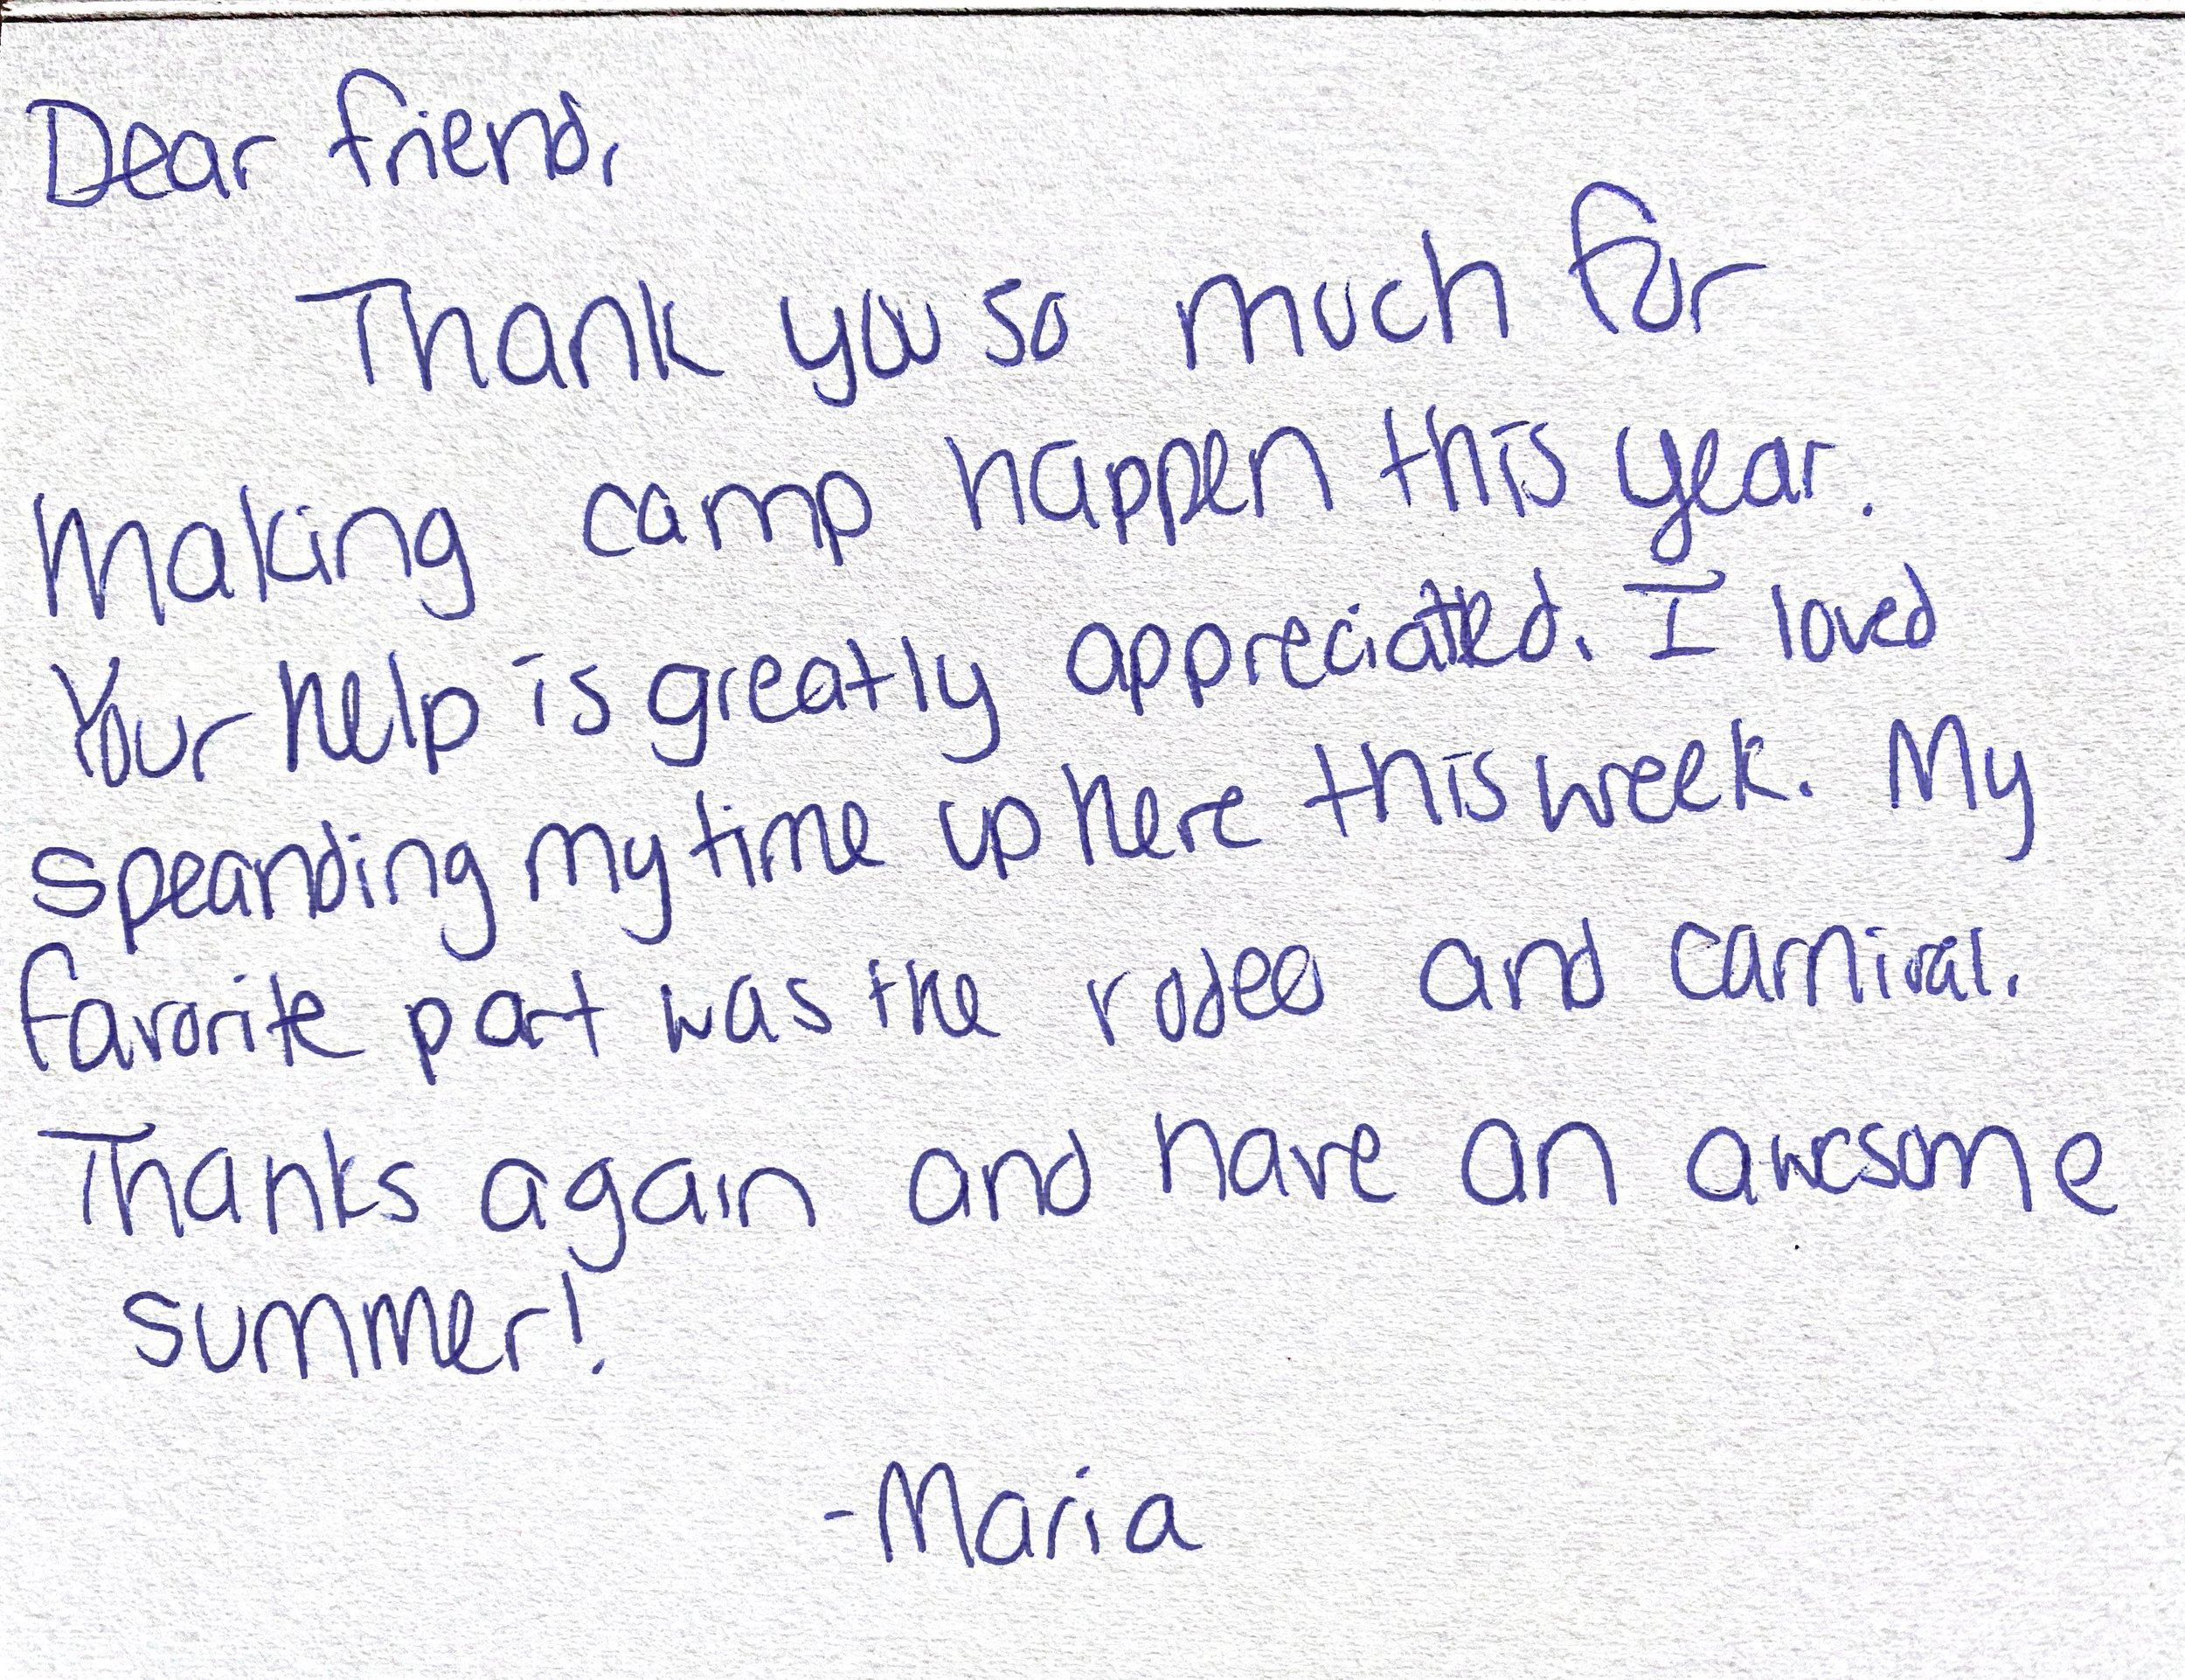 Dear friend,
Thank you so much for
making camp happen this year.
Your help is greatly appreciated. I loved
speanding my time up here this week. My
favorite part was the rodeo and carnival.
Thanks again and have an awesome
summer!
-Maria